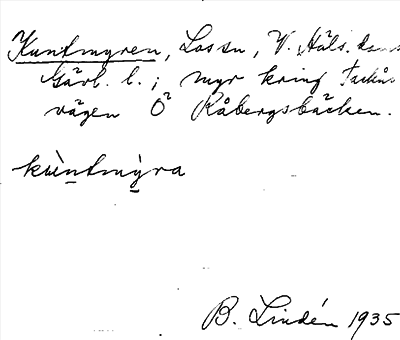 Kuntmyren, Lossn, V. Häls.
Gävl. l.; myr kring
vägen Ö Råbergsbäcken.
kùntmỳra
B. Lindén 1935